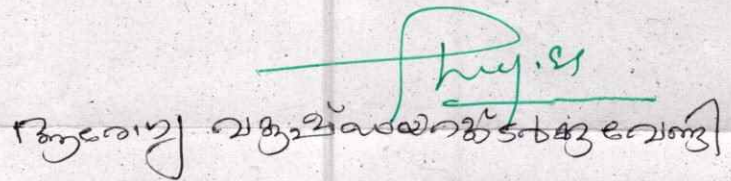 ആരോഗ്യ വകുപ്പ് ഡയറക്ടർക്കു വേണ്ടി